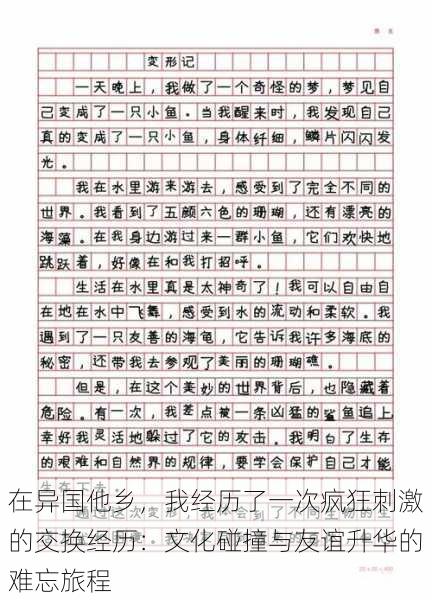 变形记
一天晚上，我做了一个奇怪的梦，梦见自
己变成了一只小鱼。当我醒来时，我发现自己
真的变成了一只小鱼，身体纤细，鳞片闪闪发
光。
我在水里游来游去，感受到了完全不同的
世界。我看到了五颜六色的珊瑚，还有漂亮的
海藻。在我身边游过来一群小鱼，它们欢快地
跳跃着，好像在和我打招呼。
生活在水里真是太神奇了！我可以自由自
在地在水中飞舞，感受到水的流动和柔软。我
遇到了一只友善的海龟，它告诉我许多海底的
秘密，还带我去参观了美丽的珊瑚礁。
但是，在这个美妙的世界背后，也隐藏着
危险。有一次，我差点被一条凶猛的鲨鱼追上，
幸好我灵活地躲过了它的攻击。我明白了生存
的艰难和自然界的规律，要学会保护自己才能
生存下去。
在异国他乡，我经历了一次疯狂刺激
的交换经历：文化碰撞与友谊升华的
难忘旅程
20×20=400